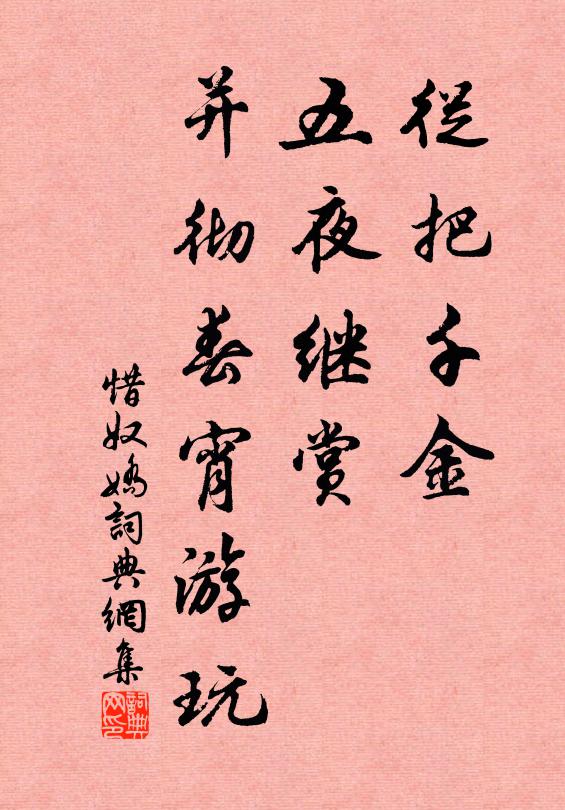 從把千金
五夜继赏
并彻春宵游玩
惜奴嬌詞典網集
詞典
网印